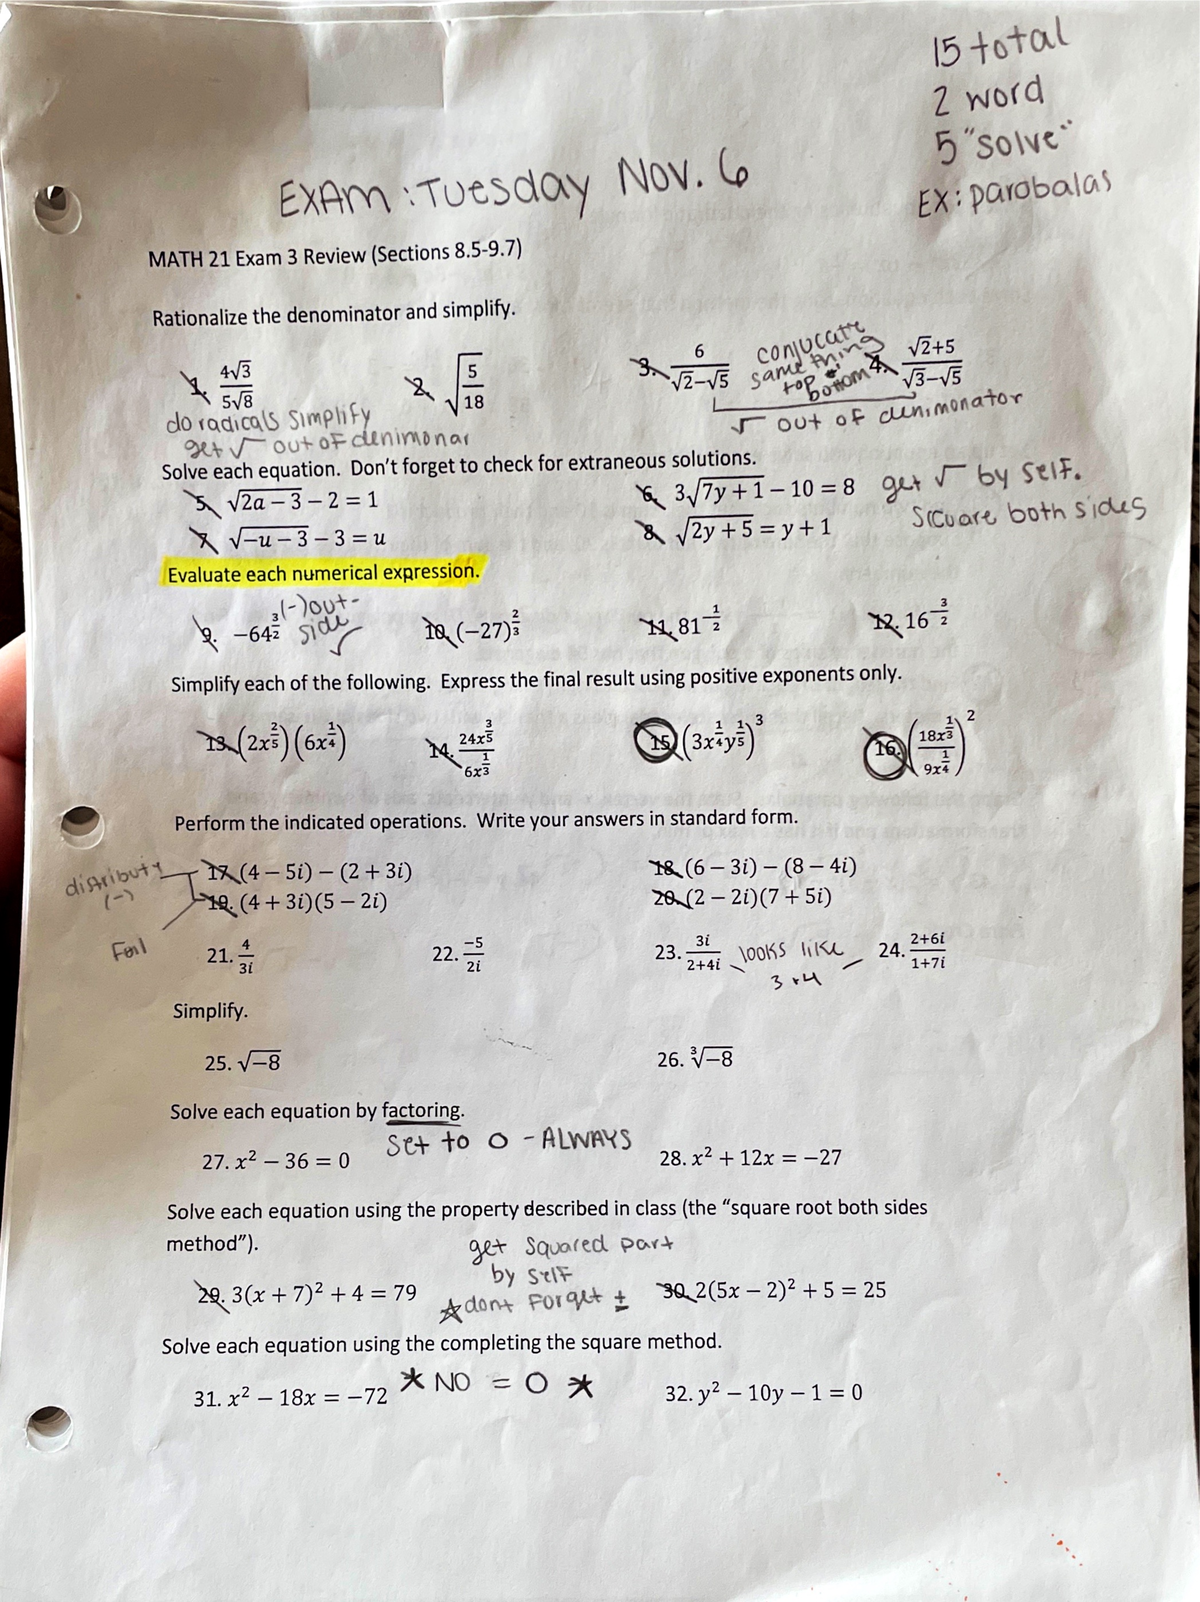 15 total
2 word
5 "solve"
EX: parabalas
EXAM: Tuesday Nov. 6
MATH 21 Exam 3 Review (Sections 8.5-9.7)
Rationalize the denominator and simplify.
1. 4√3/5√8 2. √(5/18) 3. 6/(√2−√5) conjucate same thing top + bottom 4. (√2+5)/(√3−√5)
do radicals simplify
get √ out of denimonar
√ out of denimonator
Solve each equation. Don't forget to check for extraneous solutions.
5. √(2a − 3) − 2 = 1 6. 3√(7y + 1) − 10 = 8 get √ by self.
7. √(−u − 3) − 3 = u 8. √(2y + 5) = y + 1 Square both sides
Evaluate each numerical expression.
(-) out-
side
9. −64^(3/2) 10. (−27)^(2/3) 11. 81^(−1/2) 12. 16^(−3/2)
Simplify each of the following. Express the final result using positive exponents only.
13. (2x^(2/5))(6x^(1/4)) 14. 24x^(3/5)/6x^(1/3) 15. (3x^(1/4)y^(1/5))^3 16. (18x^(1/3)/9x^(1/4))^2
Perform the indicated operations. Write your answers in standard form.
distributy (-) 17. (4 − 5i) − (2 + 3i) 18. (6 − 3i) − (8 − 4i)
Foil 19. (4 + 3i)(5 − 2i) 20. (2 − 2i)(7 + 5i)
21. 4/3i 22. −5/2i 23. 3i/(2+4i) looks like 3 + 4 24. (2+6i)/(1+7i)
Simplify.
25. √−8 26. ∛−8
Solve each equation by factoring.
Set to 0 - ALWAYS
27. x² − 36 = 0 28. x² + 12x = −27
Solve each equation using the property described in class (the "square root both sides
method").
get squared part
by self
29. 3(x + 7)² + 4 = 79 ☆ dont forget ± 30. 2(5x − 2)² + 5 = 25
Solve each equation using the completing the square method.
31. x² − 18x = −72 * NO = 0 * 32. y² − 10y − 1 = 0